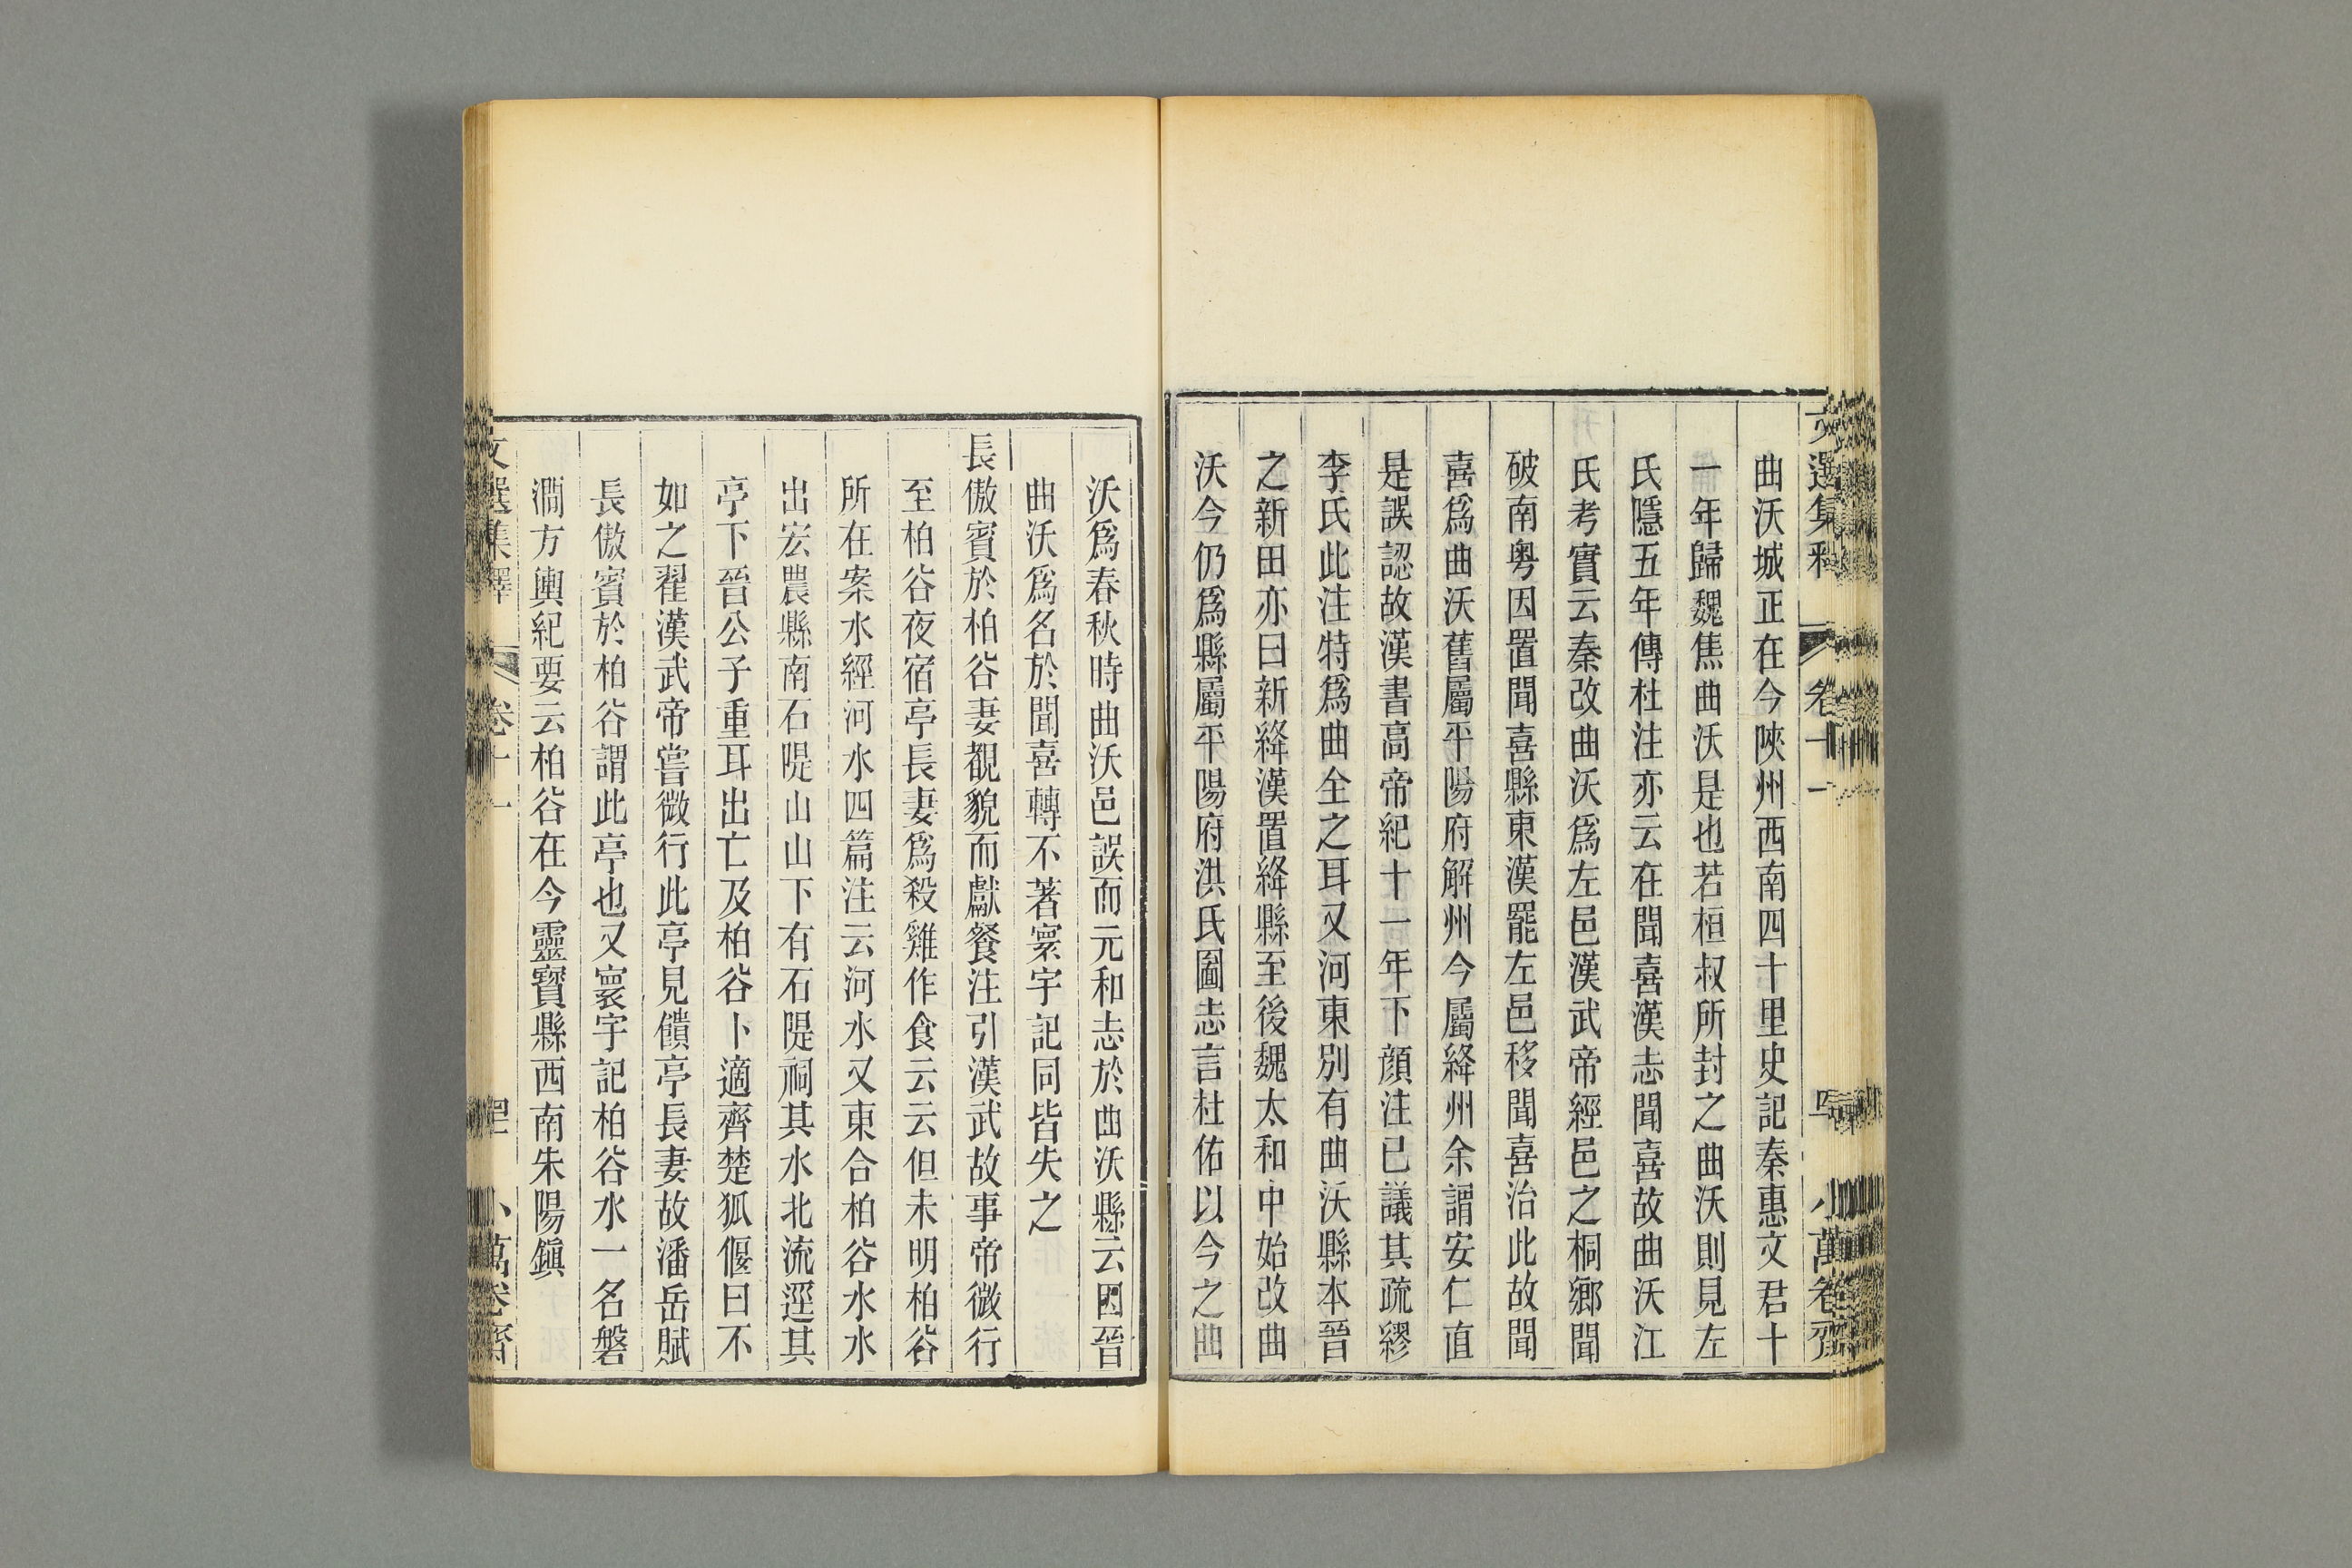 曲沃城正在今陝州西南四十里史記秦惠文君十
一年歸魏焦曲沃是也若桓叔所封之曲沃則見左
氏隱五年傳杜注亦云在聞喜漢志聞喜故曲沃江
氏考實云秦改曲沃爲左邑漢武帝經邑之桐鄉聞
破南粤因置聞喜縣東漢罷左邑移聞喜治此故聞
喜爲曲沃舊屬平陽府解州今屬絳州余謂安仁直
是誤認故漢書高帝紀十一年下顔注已議其疏繆
李氏此注特爲曲全之耳又河東別有曲沃縣本晉
之新田亦曰新絳漢置絳縣至後魏太和中始改曲
沃今仍爲縣屬平陽府洪氏圖志言杜佑以今之曲
沃爲春秋時曲沃邑誤而元和志於曲沃縣云因晉
曲沃爲名於聞喜轉不著寰宇記同皆失之
長傲賓於柏谷妻覩貌而獻餐注引漢武故事帝微行
至柏谷夜宿亭長妻爲殺雞作食云云但未明柏谷
所在案水經河水四篇注云河水又東合柏谷水水
出宏農縣南石隄山山下有石隄祠其水北流逕其
亭下晉公子重耳出亡及柏谷卜適齊楚狐偃曰不
如之翟漢武帝嘗微行此亭見饋亭長妻故潘岳賦
長傲賓於柏谷謂此亭也又寰宇記柏谷水一名磐
澗方輿紀要云柏谷在今靈寶縣西南朱陽鎭
選集釋 卷十一 小萬卷齋
選集釋 卷十一 萬卷齋